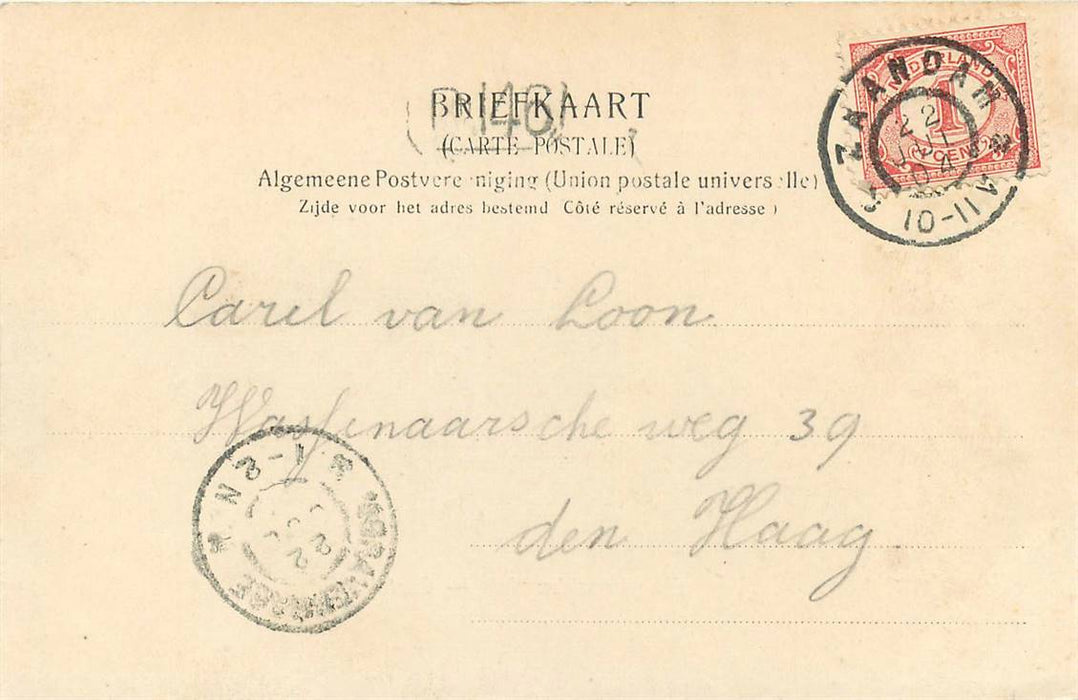 BRIEFKAART
(CARTE POSTALE)
Algemeene Postvereeniging (Union postale universelle)
Zijde voor het adres bestemd Côté réservé à l'adresse )
NEDERLAND
1
ZAANDAM
22
JUL
04
10-11
Carel van Loon
Wassenaarsche weg 39
den Haag
'SGRAVENHAGE
1-2N
22